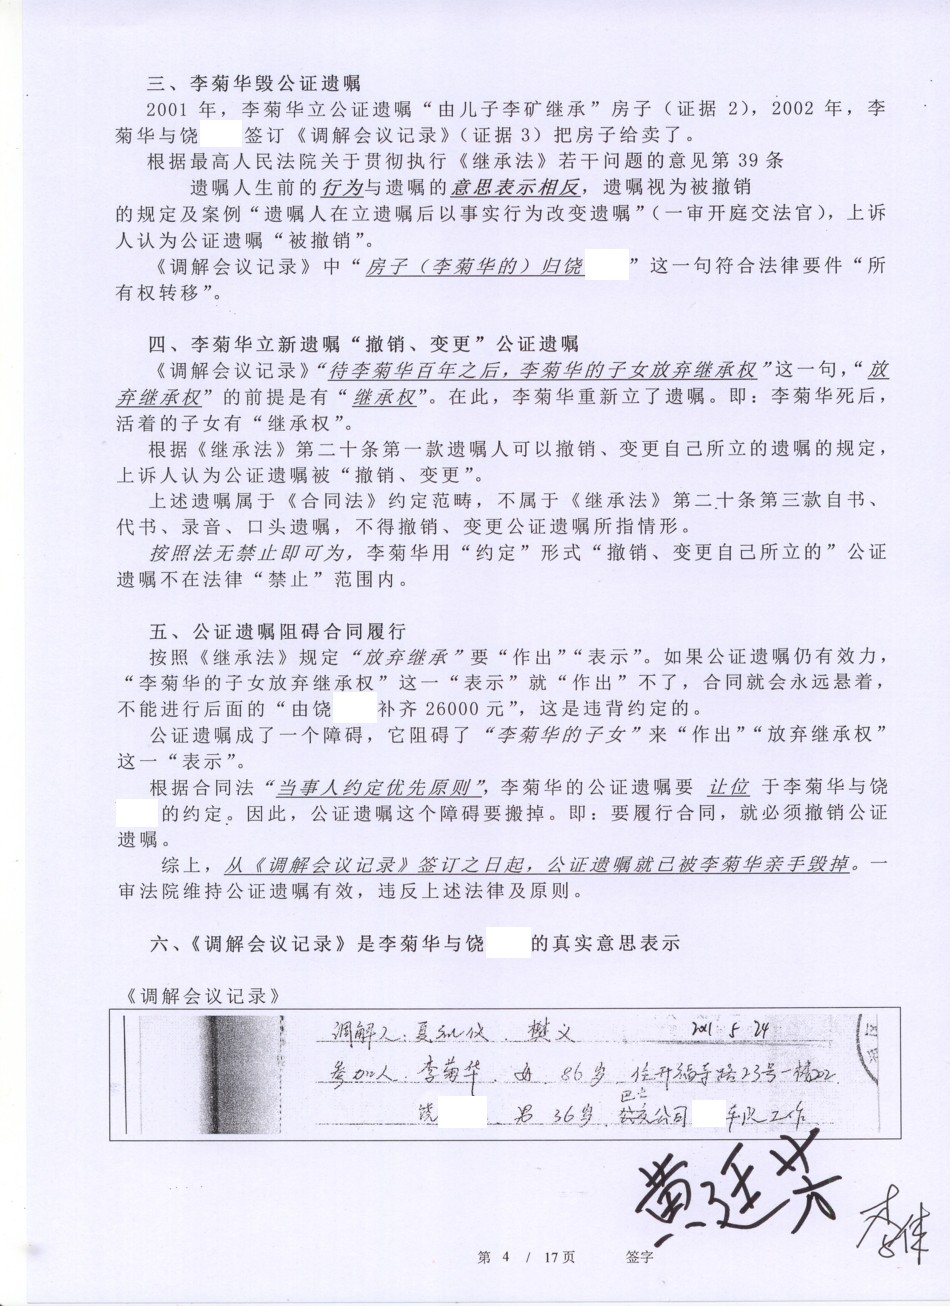 三、李菊华毁公证遗嘱
2001 年，李菊华立公证遗嘱“由儿子李矿继承”房子（证据 2），2002 年，李
菊华与饶 签订《调解会议记录》（证据 3）把房子给卖了。
根据最高人民法院关于贯彻执行《继承法》若干问题的意见第 39 条
遗嘱人生前的行为与遗嘱的意思表示相反，遗嘱视为被撤销
的规定及案例“遗嘱人在立遗嘱后以事实行为改变遗嘱”（一审开庭交法官），上诉
人认为公证遗嘱“被撤销”。
《调解会议记录》中“房子（李菊华的）归饶 ”这一句符合法律要件“所
有权转移”。
四、李菊华立新遗嘱“撤销、变更”公证遗嘱
《调解会议记录》“待李菊华百年之后，李菊华的子女放弃继承权”这一句，“放
弃继承权”的前提是有“继承权”。在此，李菊华重新立了遗嘱。即：李菊华死后，
活着的子女有“继承权”。
根据《继承法》第二十条第一款遗嘱人可以撤销、变更自己所立的遗嘱的规定，
上诉人认为公证遗嘱被“撤销、变更”。
上述遗嘱属于《合同法》约定范畴，不属于《继承法》第二十条第三款自书、
代书、录音、口头遗嘱，不得撤销、变更公证遗嘱所指情形。
按照法无禁止即可为，李菊华用“约定”形式“撤销、变更自己所立的”公证
遗嘱不在法律“禁止”范围内。
五、公证遗嘱阻碍合同履行
按照《继承法》规定“放弃继承”要“作出”“表示”。如果公证遗嘱仍有效力，
“李菊华的子女放弃继承权”这一“表示”就“作出”不了，合同就会永远悬着，
不能进行后面的“由饶 补齐 26000 元”，这是违背约定的。
公证遗嘱成了一个障碍，它阻碍了“李菊华的子女”来“作出”“放弃继承权”
这一“表示”。
根据合同法“当事人约定优先原则”，李菊华的公证遗嘱要 让位 于李菊华与饶
的约定。因此，公证遗嘱这个障碍要搬掉。即：要履行合同，就必须撤销公证
遗嘱。
综上，从《调解会议记录》签订之日起，公证遗嘱就已被李菊华亲手毁掉。一
审法院维持公证遗嘱有效，违反上述法律及原则。
六、《调解会议记录》是李菊华与饶 的真实意思表示
《调解会议记录》
调解人：夏 仪 樊义 2001 5 24
参加人：李菊华 女 86岁 住开福寺路23号一栋202
饶 男 36岁 巴士 公交公司 车队工作
黄廷芳
李伟
第 4 / 17页 签字